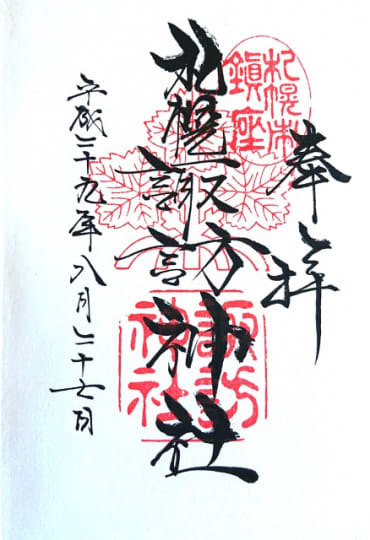 奉拝
札幌村
鎮座
札幌諏訪神社
諏訪
神社
平成二十九年八月二十七日